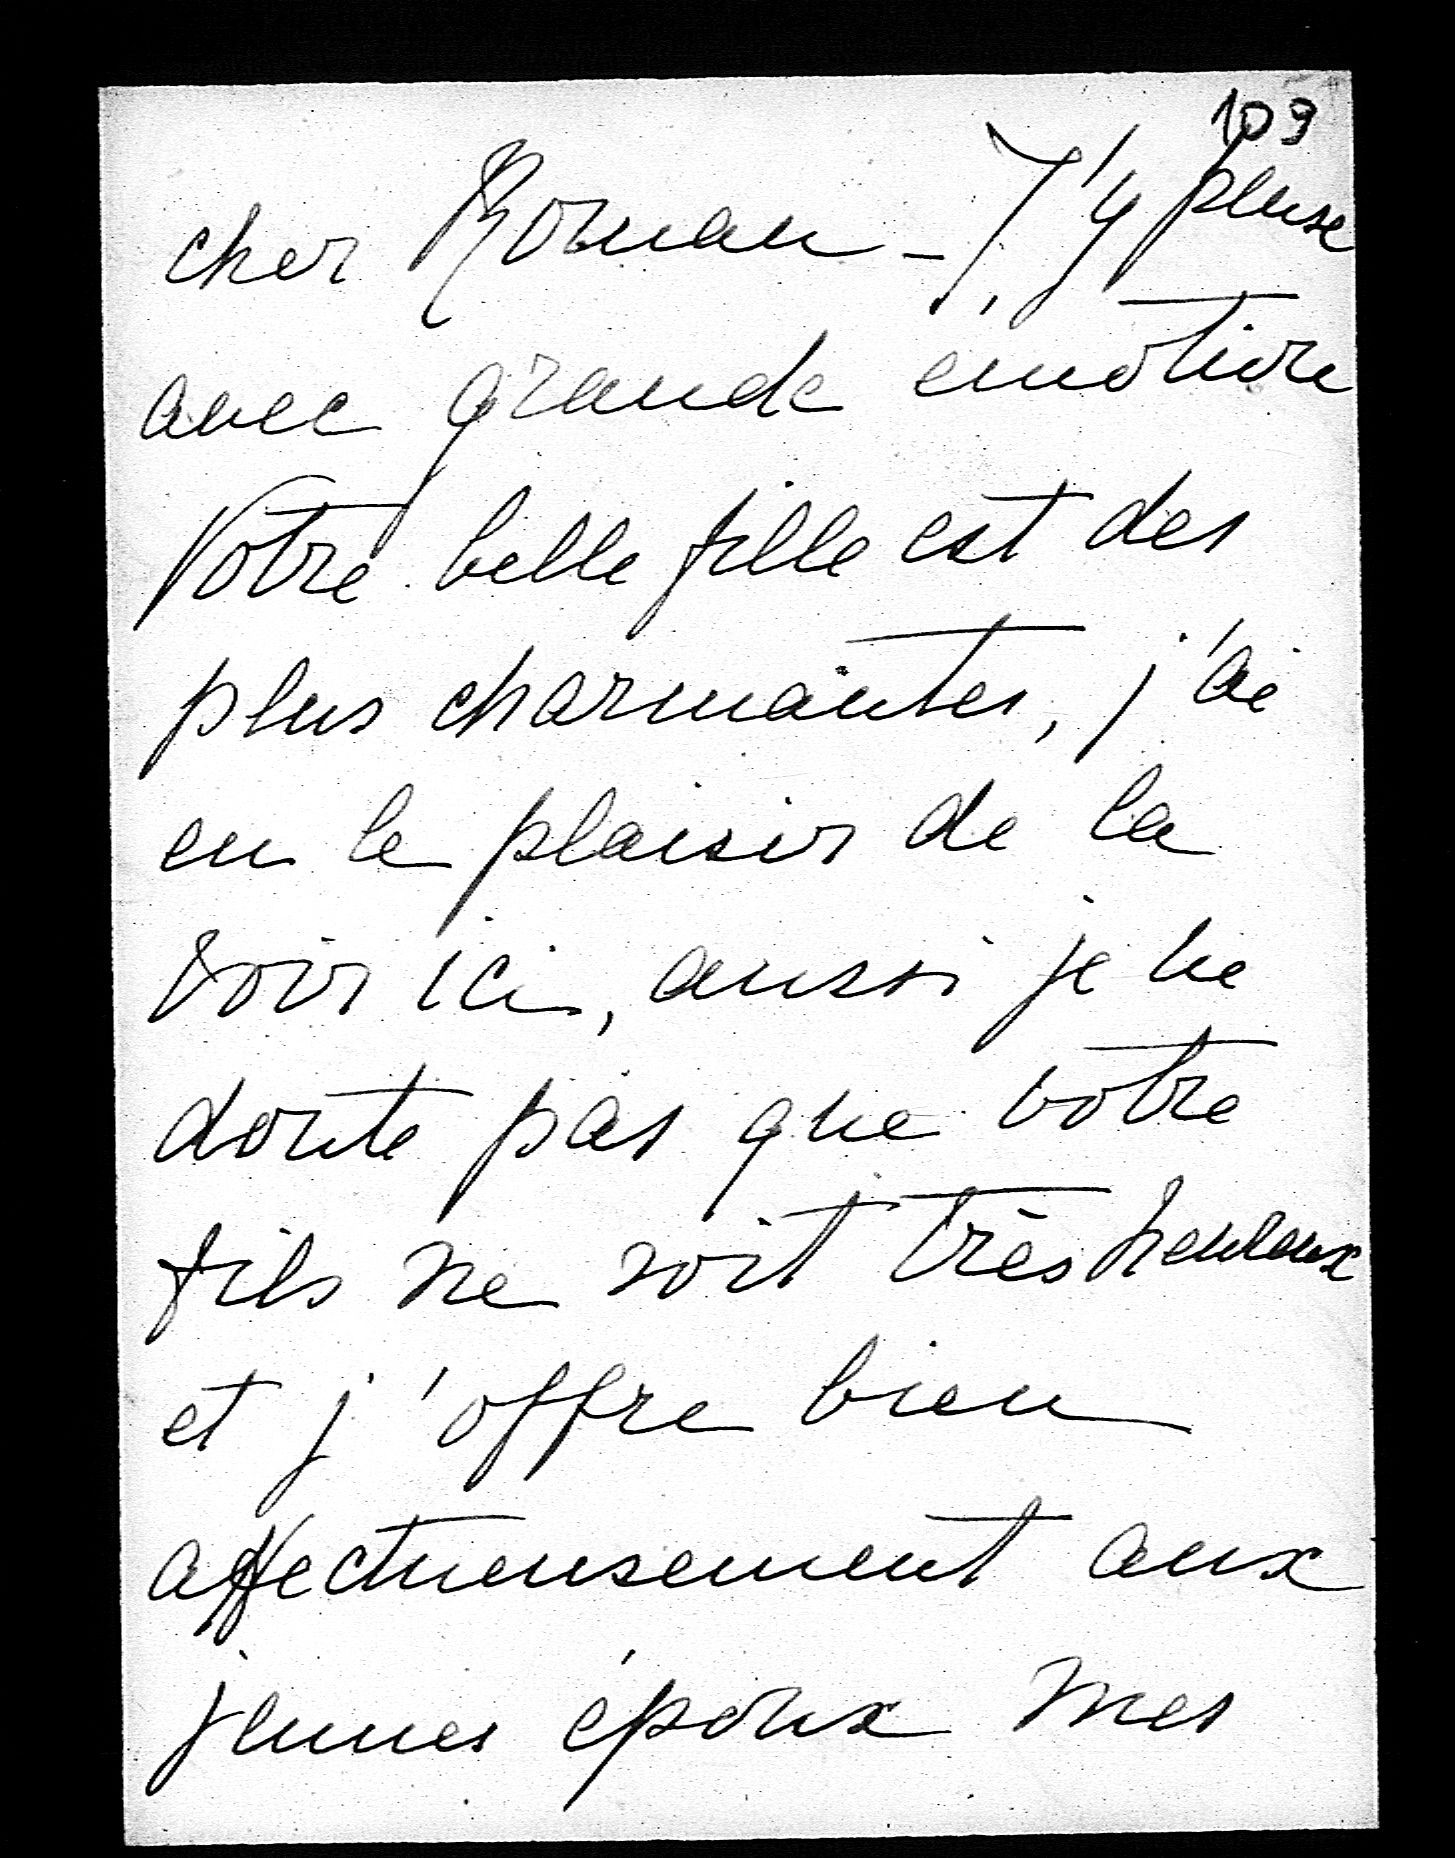 109
cher Roman – J'y pense
avec grande émotion
Votre belle fille est des
plus charmantes, j'ai
eu le plaisir de la
voir ici, aussi je ne
doute pas que votre
fils ne soit très heureux
et j'offre bien
affectueusement aux
jeunes époux mes